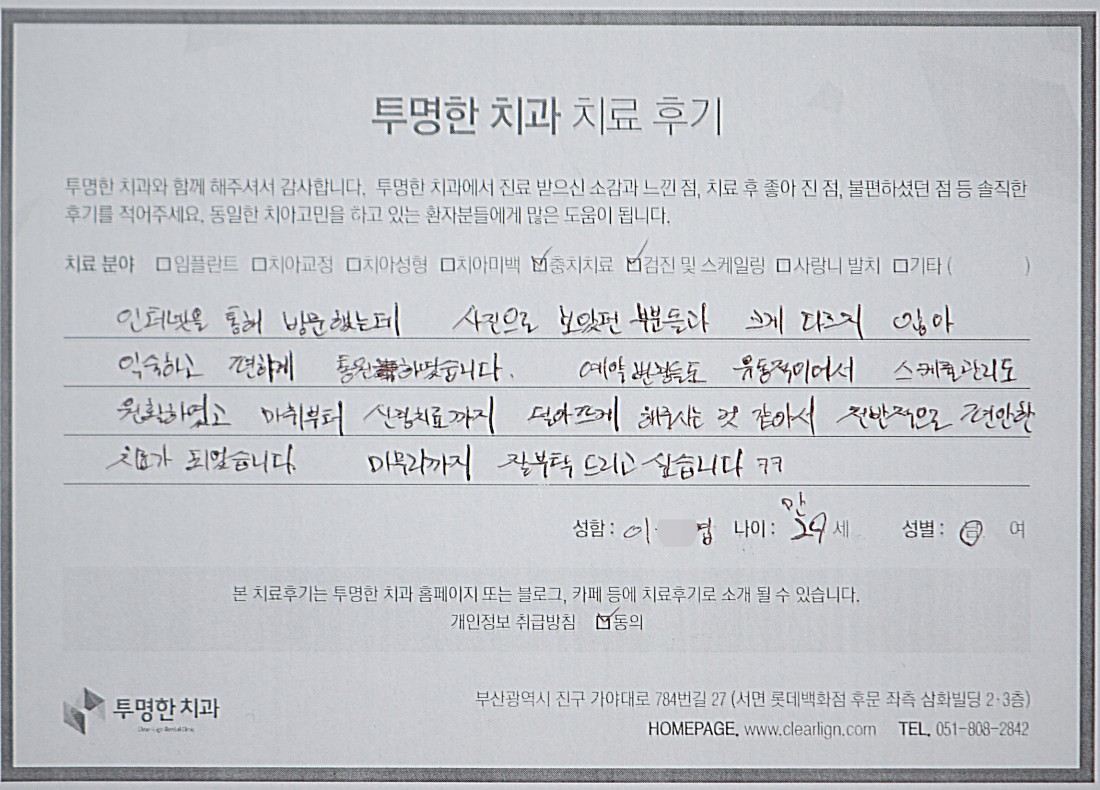 투명한 치과 치료 후기
투명한 치과와 함께 해주셔서 감사합니다. 투명한 치과에서 진료 받으신 소감과 느낀 점, 치료 후 좋아 진 점, 불편하셨던 점 등 솔직한
후기를 적어주세요. 동일한 치아고민을 하고 있는 환자분들에게 많은 도움이 됩니다.
치료 분야 □임플란트 □치아교정 □치아성형 □치아미백 ☑충치치료 ☑검진 및 스케일링 □사랑니 발치 □기타 ( )
인터넷을 통해 방문했는데 사진으로 보았던 부분들과 크게 다르지 않아
익숙하고 편하게 통원하였습니다. 예약 변경들도 유동적이어서 스케쥴관리도
원활하였고 마취부터 신경치료까지 해주시는 것 같아서 전반적으로 편안한
치료가 되었습니다. 마무리까지 잘부탁 드리고 싶습니다 ㅋㅋ
성함 : 이 협 나이 : 만 29 세 성별 : 남 여
본 치료후기는 투명한 치과 홈페이지 또는 블로그, 카페 등에 치료후기로 소개 될 수 있습니다.
개인정보 취급방침 ☑동의
투명한 치과
부산광역시 진구 가야대로 784번길 27 (서면 롯데백화점 후문 좌측 삼화빌딩 2·3층)
HOMEPAGE. www.clearlign.com TEL. 051-808-2842